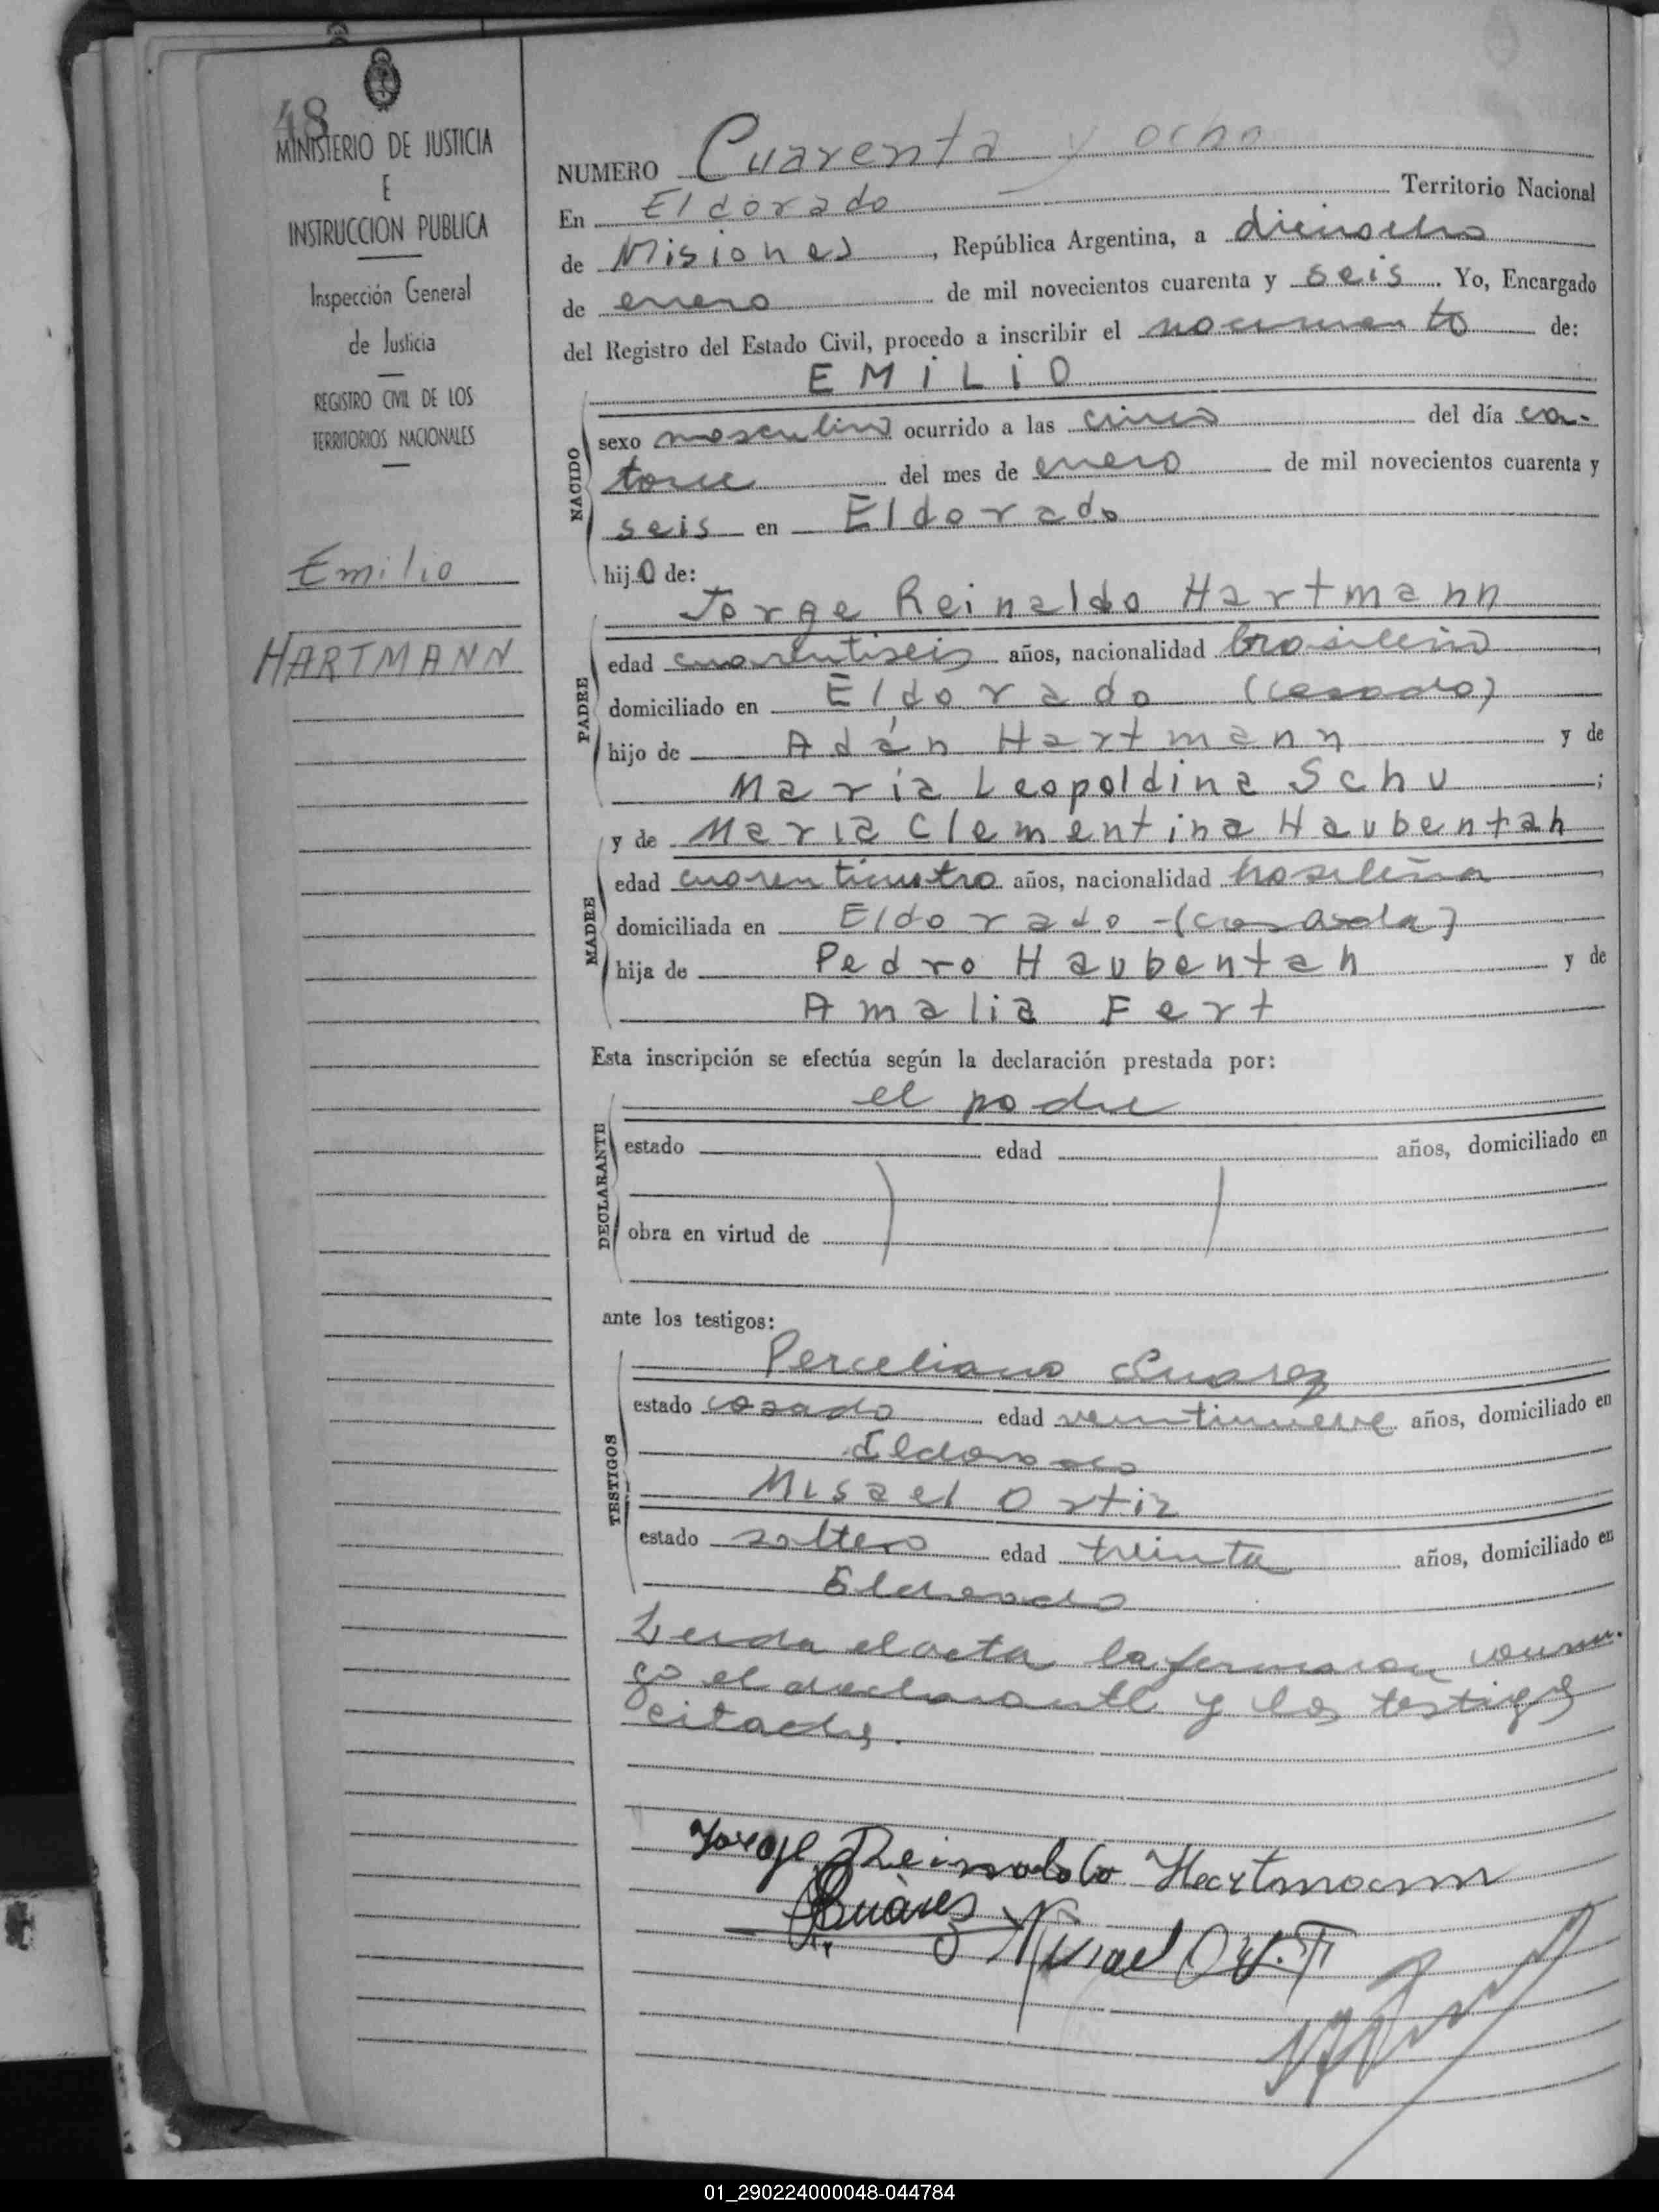 48
MINISTERIO DE JUSTICIA
E
INSTRUCCION PUBLICA
Inspección General
de Justicia
REGISTRO CIVIL DE LOS
TERRITORIOS NACIONALES
Emilio
HARTMANN
NUMERO Cuarenta y ocho
En Eldorado Territorio Nacional
de Misiones, República Argentina, a dieciocho
de enero de mil novecientos cuarenta y seis. Yo, Encargado
del Registro del Estado Civil, procedo a inscribir el nacimiento de:
EMILIO
NACIDO
sexo masculino ocurrido a las cinco del día ca-
torce del mes de enero de mil novecientos cuarenta y
seis en Eldorado
hijo de:
Jorge Reinaldo Hartmann
PADRE
edad cuarentiseis años, nacionalidad brasileño,
domiciliado en Eldorado (casado)
hijo de Adán Hartmann y de
María Leopoldina Schu;
y de María Clementina Haubentah
MADRE
edad cuarenticuatro años, nacionalidad brasileña,
domiciliada en Eldorado - (casada)
hija de Pedro Haubentah y de
Amalia Fert
Esta inscripción se efectúa según la declaración prestada por:
el padre
DECLARANTE
estado edad años, domiciliado en
obra en virtud de
ante los testigos:
Perceliano Suarez
TESTIGOS
estado casado edad veintinueve años, domiciliado en
Eldorado
Misael Ortiz
estado soltero edad treinta años, domiciliado en
Eldorado
Leída el acta la firmaron conmi-
go el declarante y los testigos
citados.
Jorge Reinaldo Hartmann
Suàres
Misael
01_290224000048-044784